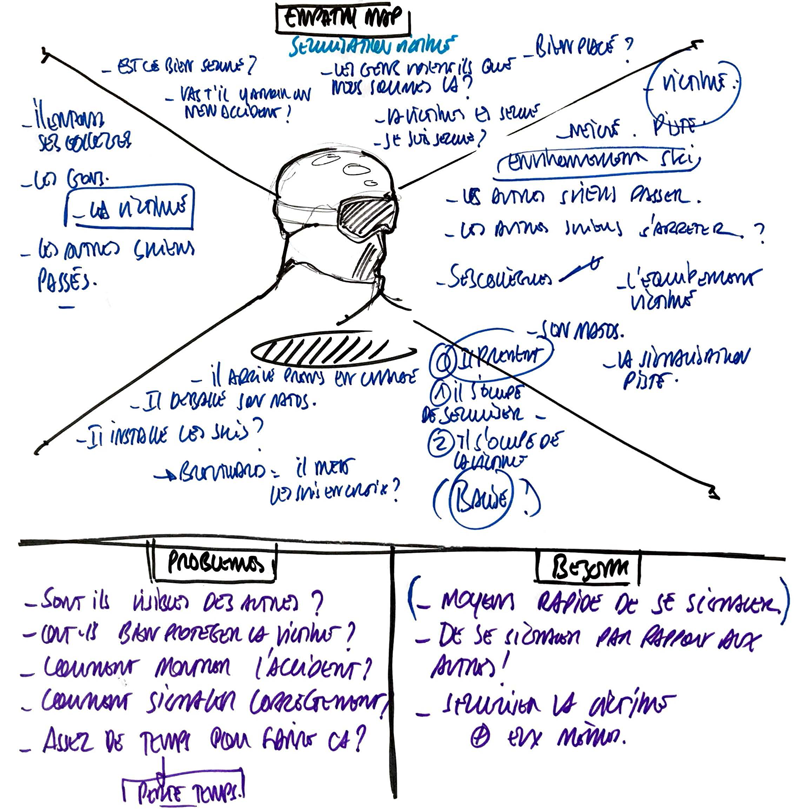 EMPATHY MAP
SECURISATION VICTIME
- EST CE BIEN SECURISÉ ?
- VAS T'IL Y AVOIR UN
NEW ACCIDENT ?
- LES GENS VOIENT ILS QUE
NOUS SOMMES LÀ ?
- LA VICTIME EST SECURISÉ
- JE SUIS SECURISÉ ?
- BIEN PLACÉ ?
- IL ENTEND
SES COLLEGUES
- LES GENS.
- LA VICTIME
- LES AUTRES SKIEURS
PASSÉS.
- VICTIME.
- NEIGE. PISTE.
ENVIRONNEMENT SKI
- LES AUTRES SKIEURS PASSER.
- LES AUTRES SKIEURS S'ARRETER ?
- SES COLLÈGUES
- L'EQUIPEMENT
VICTIME
- SON MATOS.
- LA SIGNALISATION
PISTE.
- IL ARRIVE PRENDS EN CHARGE
- IL DEBALLE SON MATOS.
- IL INSTALLE LES SKIS ?
→ BROUILLARD = IL METS
LES SKIS EN CROIX ?
⓪ IL PREVIENT
① IL S'OCCUPE
DE SECURISER -
② IL S'OCCUPE DE
LA VICTIME
(BALISE ?)
PROBLEMES
- SONT ILS VISIBLES DES AUTRES ?
- ONT-ILS BIEN PROTEGER LA VICTIME ?
- COMMENT MONTRER L'ACCIDENT ?
- COMMENT SIGNALER CORRECTEMENT,
- ASSEZ DE TEMPS POUR FAIRE CA ?
↓
PERTE TEMPS.
BESOIN
(- MOYENS RAPIDE DE SE SIGNALER)
- DE SE SIGNALER PAR RAPPORT AUX
AUTRES !
- SECURISER LA VICTIME
⊕ EUX MÊMES.